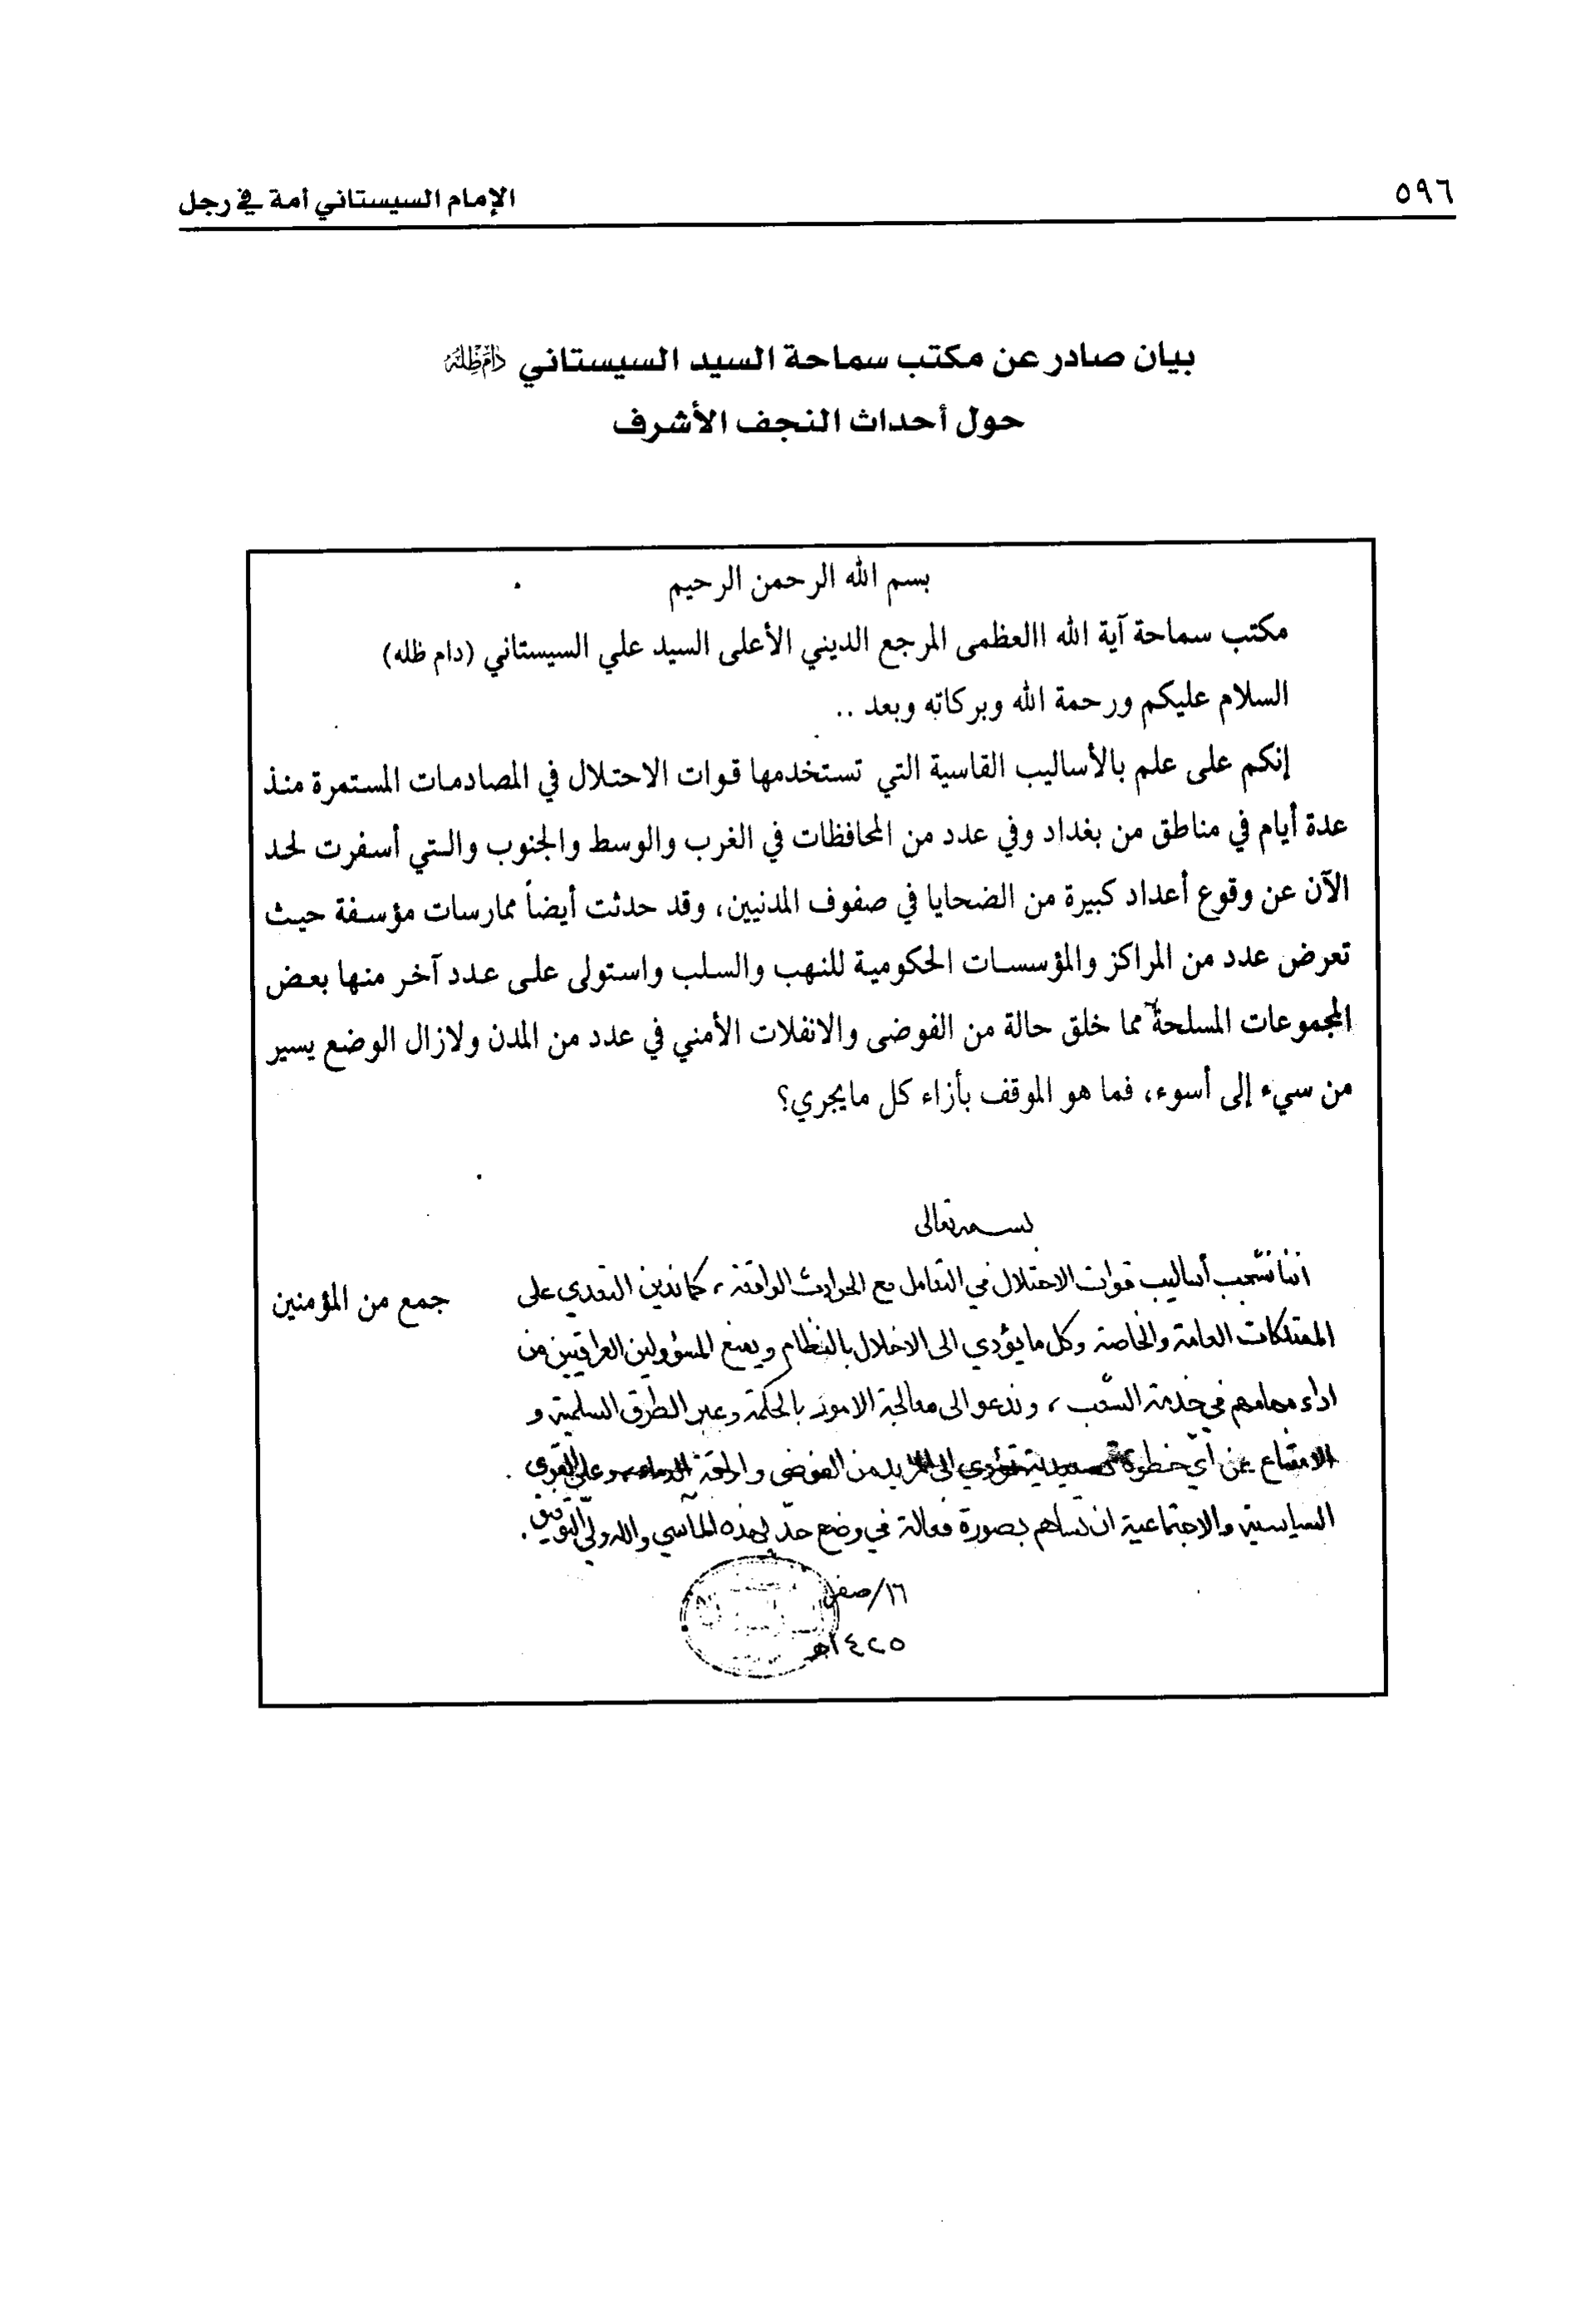 ٥٩٦
الإمام السيستاني أمة في رجل
بيان صادر عن مكتب سماحة السيد السيستاني دام ظله
حول أحداث النجف الأشرف
بسم الله الرحمن الرحيم
مكتب سماحة آية الله االعظمى المرجع الديني الأعلى السيد علي السيستاني (دام ظله)
السلام عليكم ورحمة الله وبركاته وبعد ..
إنكم على علم بالأساليب القاسية التي تستخدمها قوات الاحتلال في المصادمات المستمرة منذ
عدة أيام في مناطق من بغداد وفي عدد من المحافظات في الغرب والوسط والجنوب والتي أسفرت لحد
الآن عن وقوع أعداد كبيرة من الضحايا في صفوف المدنيين، وقد حدثت أيضاً ممارسات مؤسفة حيث
تعرض عدد من المراكز والمؤسسات الحكومية للنهب والسلب واستولى على عدد آخر منها بعض
المجموعات المسلحة مما خلق حالة من الفوضى والانفلات الأمني في عدد من المدن ولازال الوضع يسير
من سيء إلى أسوء، فما هو الموقف بأزاء كل مايجري؟
جمع من المؤمنين
بسمه تعالى
اننا نشجب أساليب قوات الاحتلال في التعامل مع الحوادث الواقعة، كما ندين التعدي على
الممتلكات العامة والخاصة وكل ما يؤدي الى الاخلال بالنظام ويمنع المسؤولين العراقيين من
اداء مهامهم في خدمة الشعب، وندعو الى معالجة الامور بالحكمة وعبر الطرق السلمية و
الامتناع عن أيّ خطوة تصعيدية تؤدي الى المزيد من الفوضى واراقة الدماء وعلى القوى
السياسية والاجتماعية ان تساهم بصورة فعالة في وضع حدّ لهذه المآسي والله وليّ التوفيق.
١٦/صفر
١٤٢٥هـ